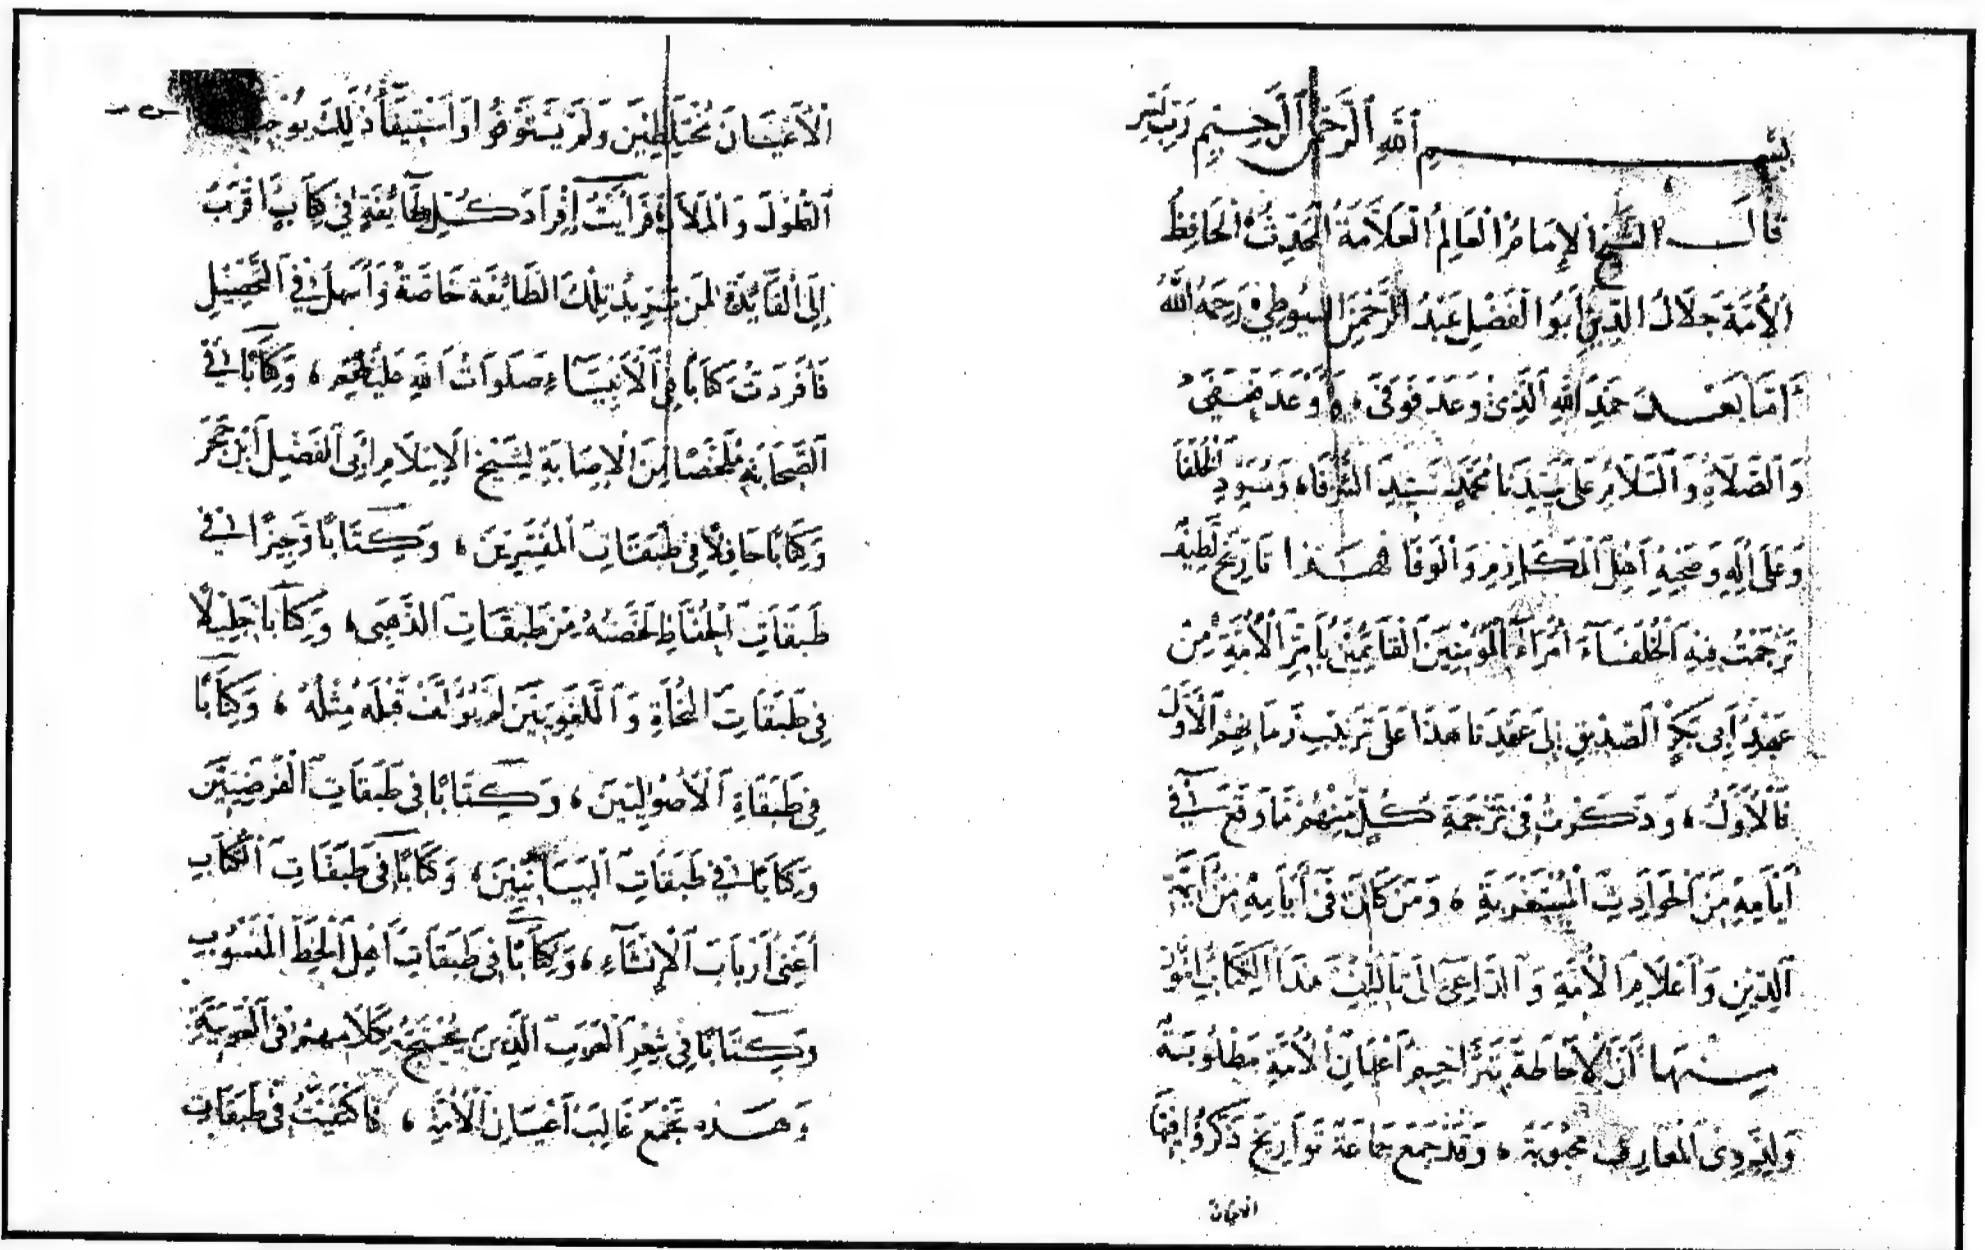 بِسْمِ اَللّٰهِ اَلرَّحْمٰنِ اَلرَّحِيمِ رَبِّ يَسِّر
قَالَ الشيخ الإمَامُ الْعَالِمُ الْعَلاَّمَةُ الْمُحَدِّثُ الْحَافِظُ
الأُمَّة جَلَالُ الدِّينِ أَبُو الْفَضْلِ عَبْدُ الرَّحْمَنِ السيُوطِي رَحِمَهُ اللَّهُ
أَمَّا بَعْدَ حَمْدِ اللهِ الَّذِي وَعَدَ فَوَفَى، وَأَوْعَدَ فَعَفَى
وَالصَّلَاةِ وَالسَّلَامِ عَلَى سَيِّدِنَا مُحَمَّدٍ سَيِّدِ الشُّرَفَا، وَمُسَوِّدِ الْخُلَفَا
وَعَلَى آلِهِ وَصَحْبِهِ أَهْلِ الْمَكَارِمِ وَالْوَفَا فهَذَا تَارِيخ لَطِيف
تَرْجَمْتُ فِيهِ الْخُلَفَاءَ أُمَرَاءَ الْمُؤْمِنِينَ الْقَائِمِينَ بِأَمْرِ الْأُمَّةِ مِنْ
عَهْدِ أَبِي بَكْرٍ الصِّدِّيقِ إِلَى عَهْدِنَا هَذَا عَلَى تَرْتِيبِ زَمَانِهِمْ الْأَوَّلَ
فَالْأَوَّلُ، وَذَكَرْتُ فِي تَرْجَمَةِ كُلٍّ مِنْهُمْ مَا وَقَعَ فِي
أَيَّامِهِ مِنَ الْحَوَادِثِ الْمُسْتَغْرَبَةِ، وَمَنْ كَانَ فِي أَيَّامِهِ مِنْ أَئِمَّةِ
الدِّينِ وَأَعْلَامِ الْأُمَّةِ وَالدَّاعِي إِلَى تَأْلِيفِ هَذَا الْكِتَابِ أُمُور
مِنْهَا أَنَّ الْإِحَاطَةَ بِتَرَاجِمِ أَعْيَانِ الْأُمَّةِ مَطْلُوبَةٌ
وَلِذَوِي الْمَعَارِفِ مَحْبُوبَةٌ، وَقَدْ جَمَعَ جَمَاعَةٌ تَوَارِيخَ ذَكَرُوا فِيهَا
الاعيان
الْأَعْيَانَ مُخْتَلِطِينَ وَلَمْ يَسْتَوْفُوا وَاسْتِيفَاءُ ذَلِكَ يُوجِبُ
الطُّولَ وَالْمَلَالَ فَرَأَيْتُ إِفْرَادَ كُلِّ طَائِفَةٍ فِي كِتَابٍ أَقْرَبَ
إِلَى الْفَائِدَةِ لِمَنْ يُرِيدُ تِلْكَ الطَّائِفَةَ خَاصَّةً وَأَسْهَلَ فِي التَّحْصِيلِ
فَأَفْرَدْتُ كِتَابًا فِي الْأَنْبِيَاءِ صَلَوَاتُ اللهِ عَلَيْهِم، وَكِتَابًا فِي
الصَّحَابَةِ مُلَخَّصًا مِنَ الْإِصَابَةِ لِشَيْخِ الْإِسْلَامِ أَبِي الْفَضْلِ ابْنِ حَجَر
وَكِتَابًا حَافِلًا فِي طَبَقَاتِ الْمُفَسِّرِينَ، وَكِتَابًا وَجِيزًا فِي
طَبَقَاتِ الْحُفَّاظِ لَخَّصْتُهُ مِنْ طَبَقَاتِ الذَّهَبِي، وَكِتَابًا جَلِيلًا
فِي طَبَقَاتِ النُّحَاةِ وَاللُّغَوِيِّينَ لَمْ يُؤَلَّفْ قَبْلَهُ مِثْلُهُ، وَكِتَابًا
فِي طَبَقَاةِ الْأُصُولِيِّينَ، وَكِتَابًا فِي طَبَقَاتِ الْفَرَضِيِّينَ
وَكِتَابًا فِي طَبَقَاتِ الْبَيَانِيِّينَ، وَكِتَابًا فِي طَبَقَاتِ الْكُتَّابِ
أَعْنِي أَرْبَابَ الْإِنْشَاءِ، وَكِتَابًا فِي طَبَقَاتِ أَهْلِ الْخَطِّ الْمَنْسُوبِ
وَكِتَابًا فِي شِعْرِ الْعَرَبِ الَّذِينَ يُحْتَجُّ بِكَلَامِهِمْ فِي الْعَرَبِيَّةِ
وَهَذِهِ تَجْمَعُ غَالِبَ أَعْيَانِ الْأُمَّةِ، فَاكْتَفَيْتُ فِي طَبَقَاتِ